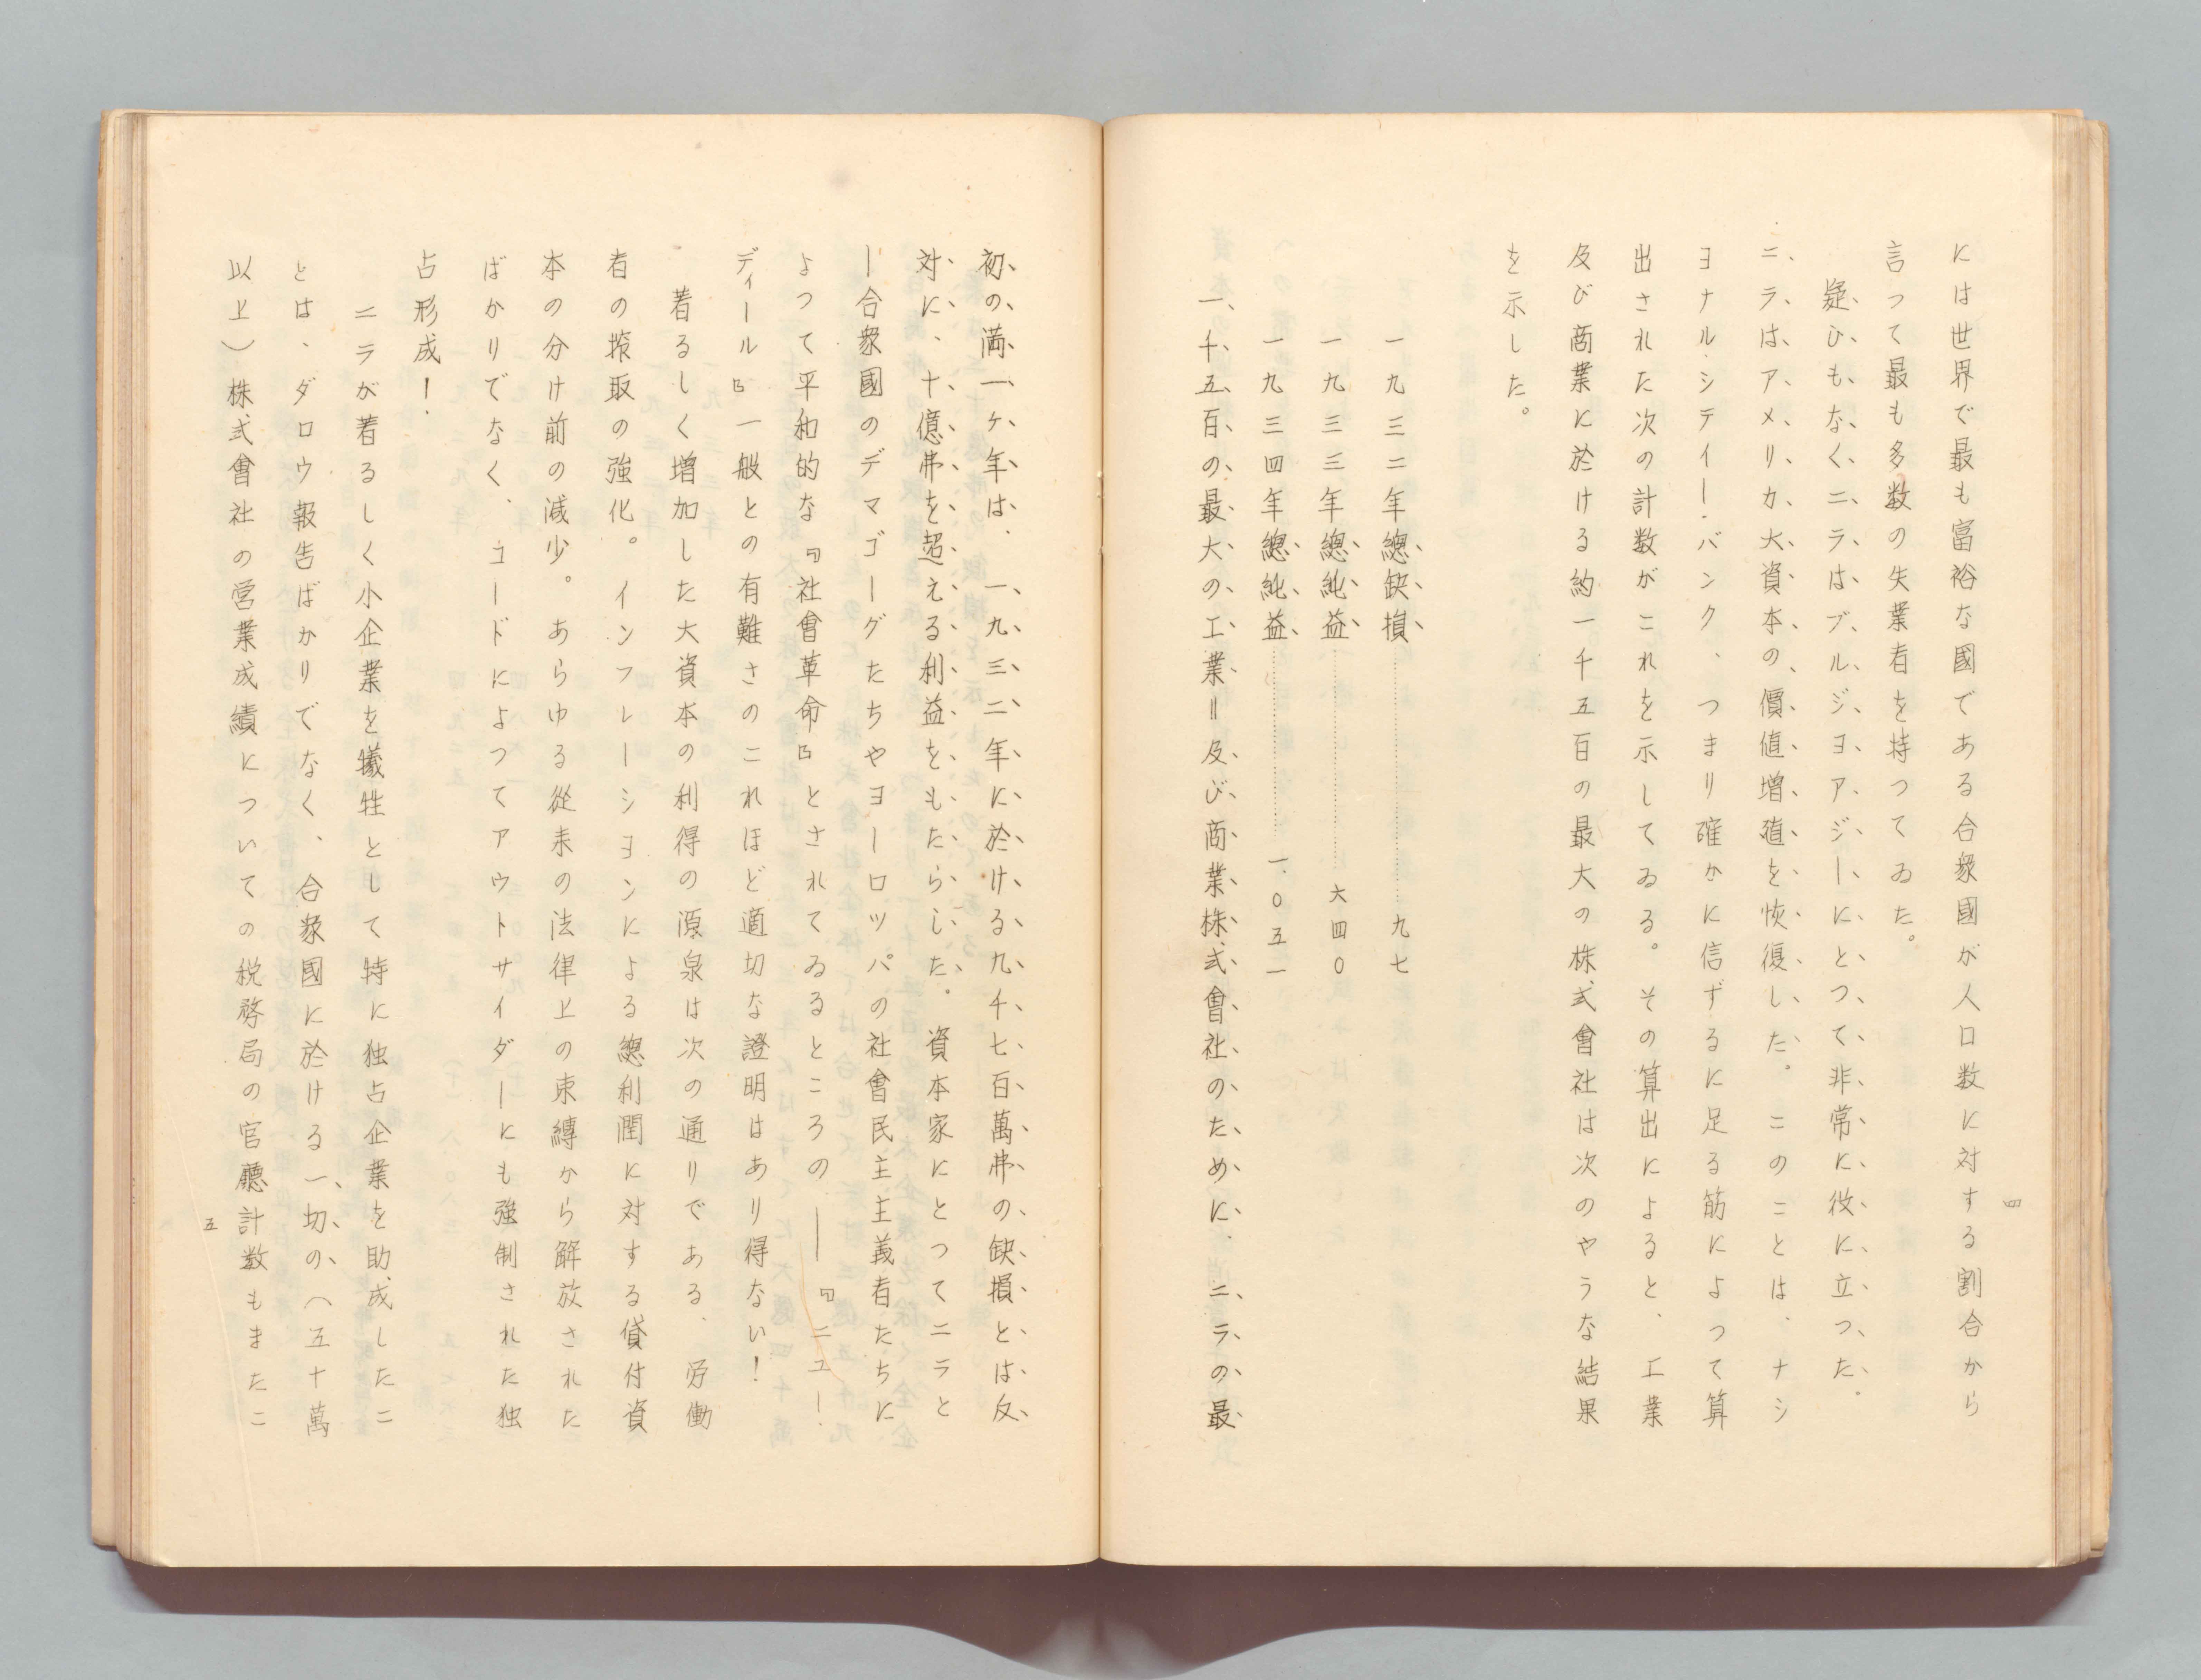 には世界で最も富裕な國である合衆國が人口数に対する割合から
言つて最も多数の失業者を持つてゐた。
疑ひもなくニラはブルジヨアジーにとつて非常に役に立つた。
ニラはアメリカ大資本の價値増殖を恢復した。このことは、ナシ
ヨナル・シテイー・バンク、つまり確かに信ずるに足る筋によつて算
出された次の計数がこれを示してゐる。その算出によると、工業
及び商業に於ける約一千五百の最大の株式會社は次のやうな結果
を示した。
一九三二年總缺損……………九七
一九三三年總純益……………六四〇
一九三四年總純益……………一、〇五一
一千五百の最大の工業=及び商業株式會社のために、ニラの最
四
初の満一ケ年は、一九三二年に於ける九千七百萬弗の缺損とは反
対に、十億弗を超える利益をもたらした。資本家にとつてニラと
ー合衆國のデマゴーグたちやヨーロツパの社會民主主義者たちに
よつて平和的な『社會革命』とされてゐるところの——『ニユー・
ディール』一般との有難さのこれほど適切な證明はあり得ない!
着るしく増加した大資本の利得の源泉は次の通りである、労働
者の搾取の強化。インフレーシヨンによる總利潤に対する貸付資
本の分け前の減少。あらゆる從来の法律上の束縛から解放された
ばかりでなく、コードによつてアウトサイダーにも強制された独
占形成!
ニラが着るしく小企業を犠牲として特に独占企業を助成したこ
とは、ダロウ報告ばかりでなく、合衆國に於ける一切の(五十萬
以上)株式會社の営業成績についての税務局の官廳計数もまたこ
五